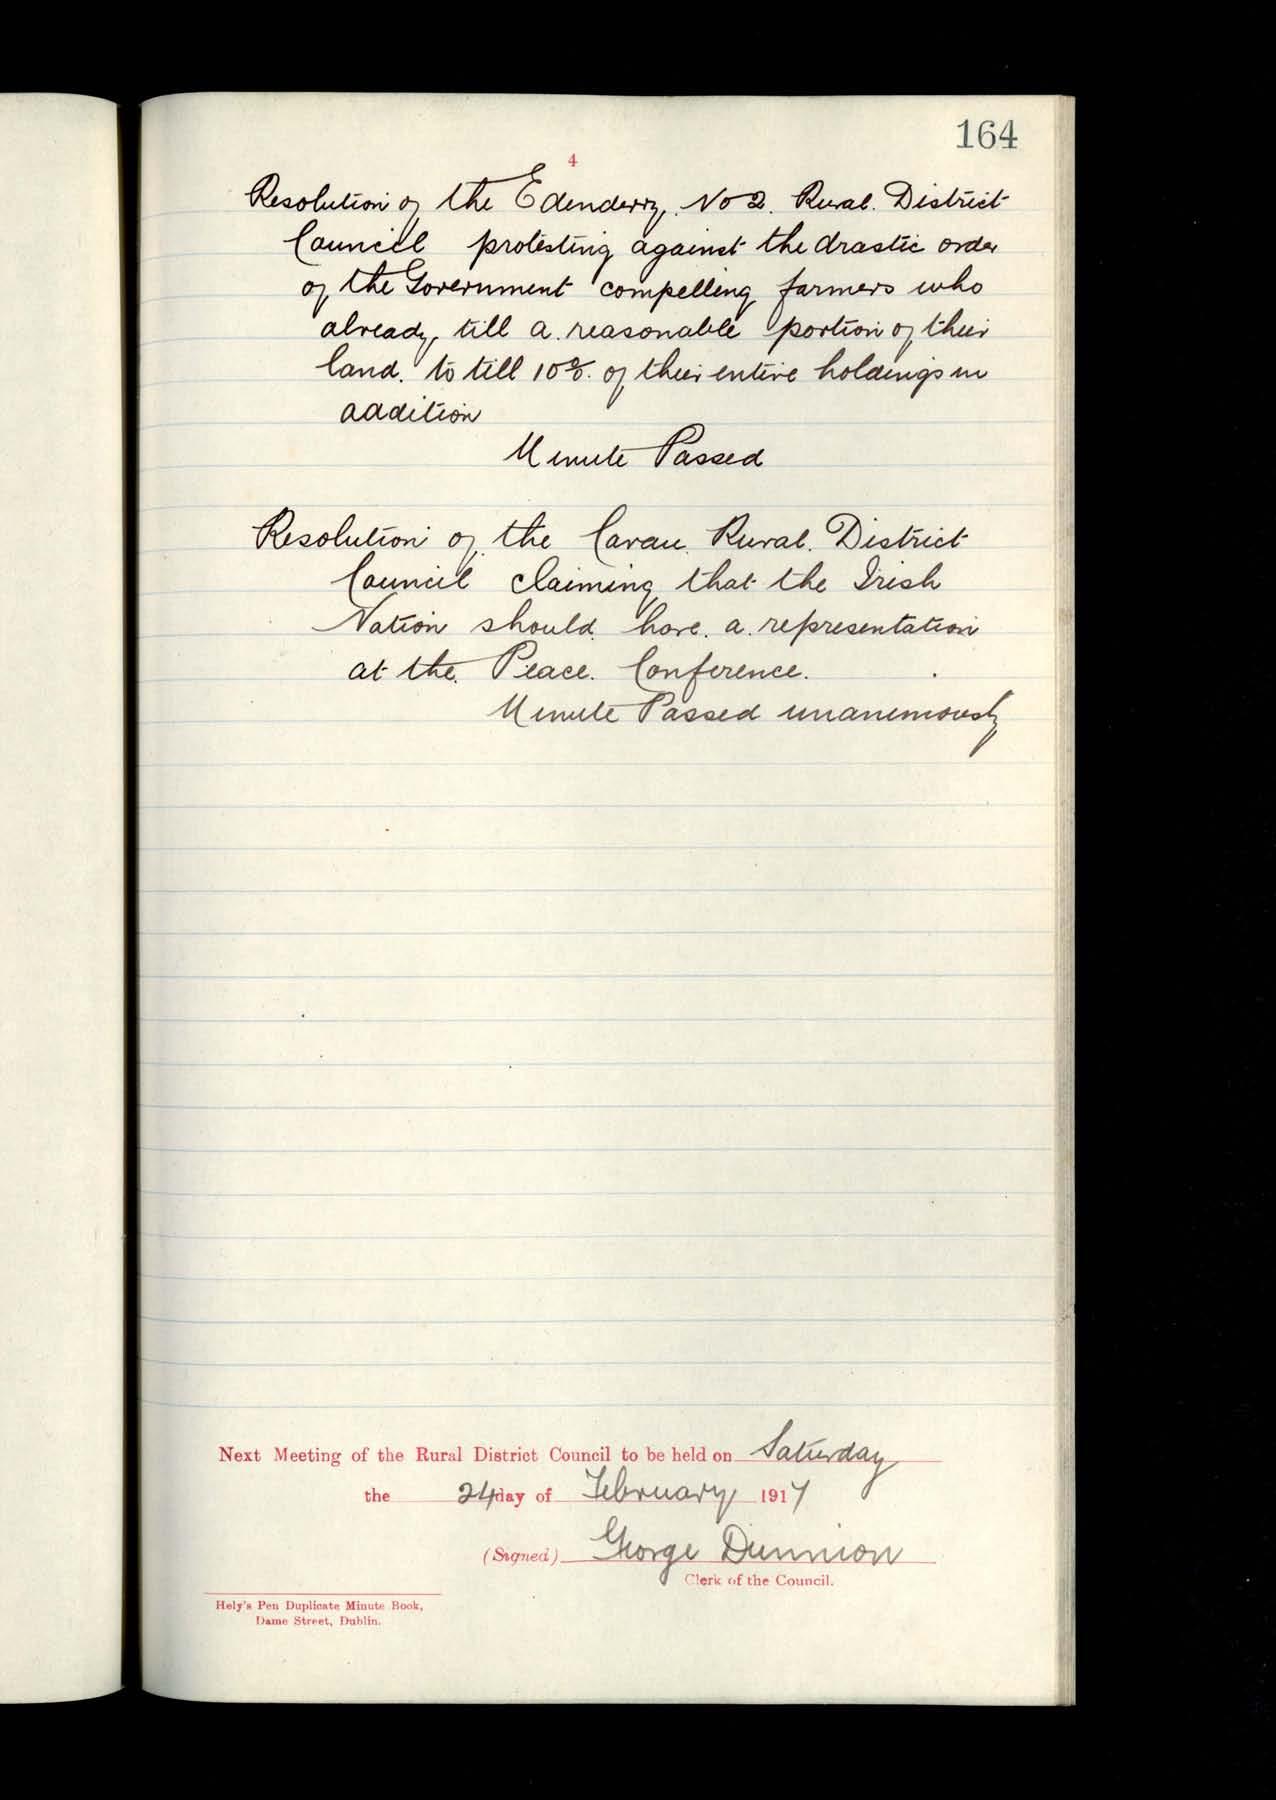 164
4
Resolution of the Edenderry No 2. Rural. District
Council protesting against the drastic order
of the Government compelling farmers who
already, till a reasonable portion of their
land. to till 10%. of their entire holdings in
addition
Minute Passed
Resolution of the Cavan Rural. District
Council claiming that the Irish
Nation should have a representation
at the Peace. Conference.
Minute Passed unanimously
Next Meeting of the Rural District Council to be held on Saturday
the 24 day of February 1917
(Signed) George Dunnion
Clerk of the Council.
Hely's Pen Duplicate Minute Book,
Dame Street, Dublin.